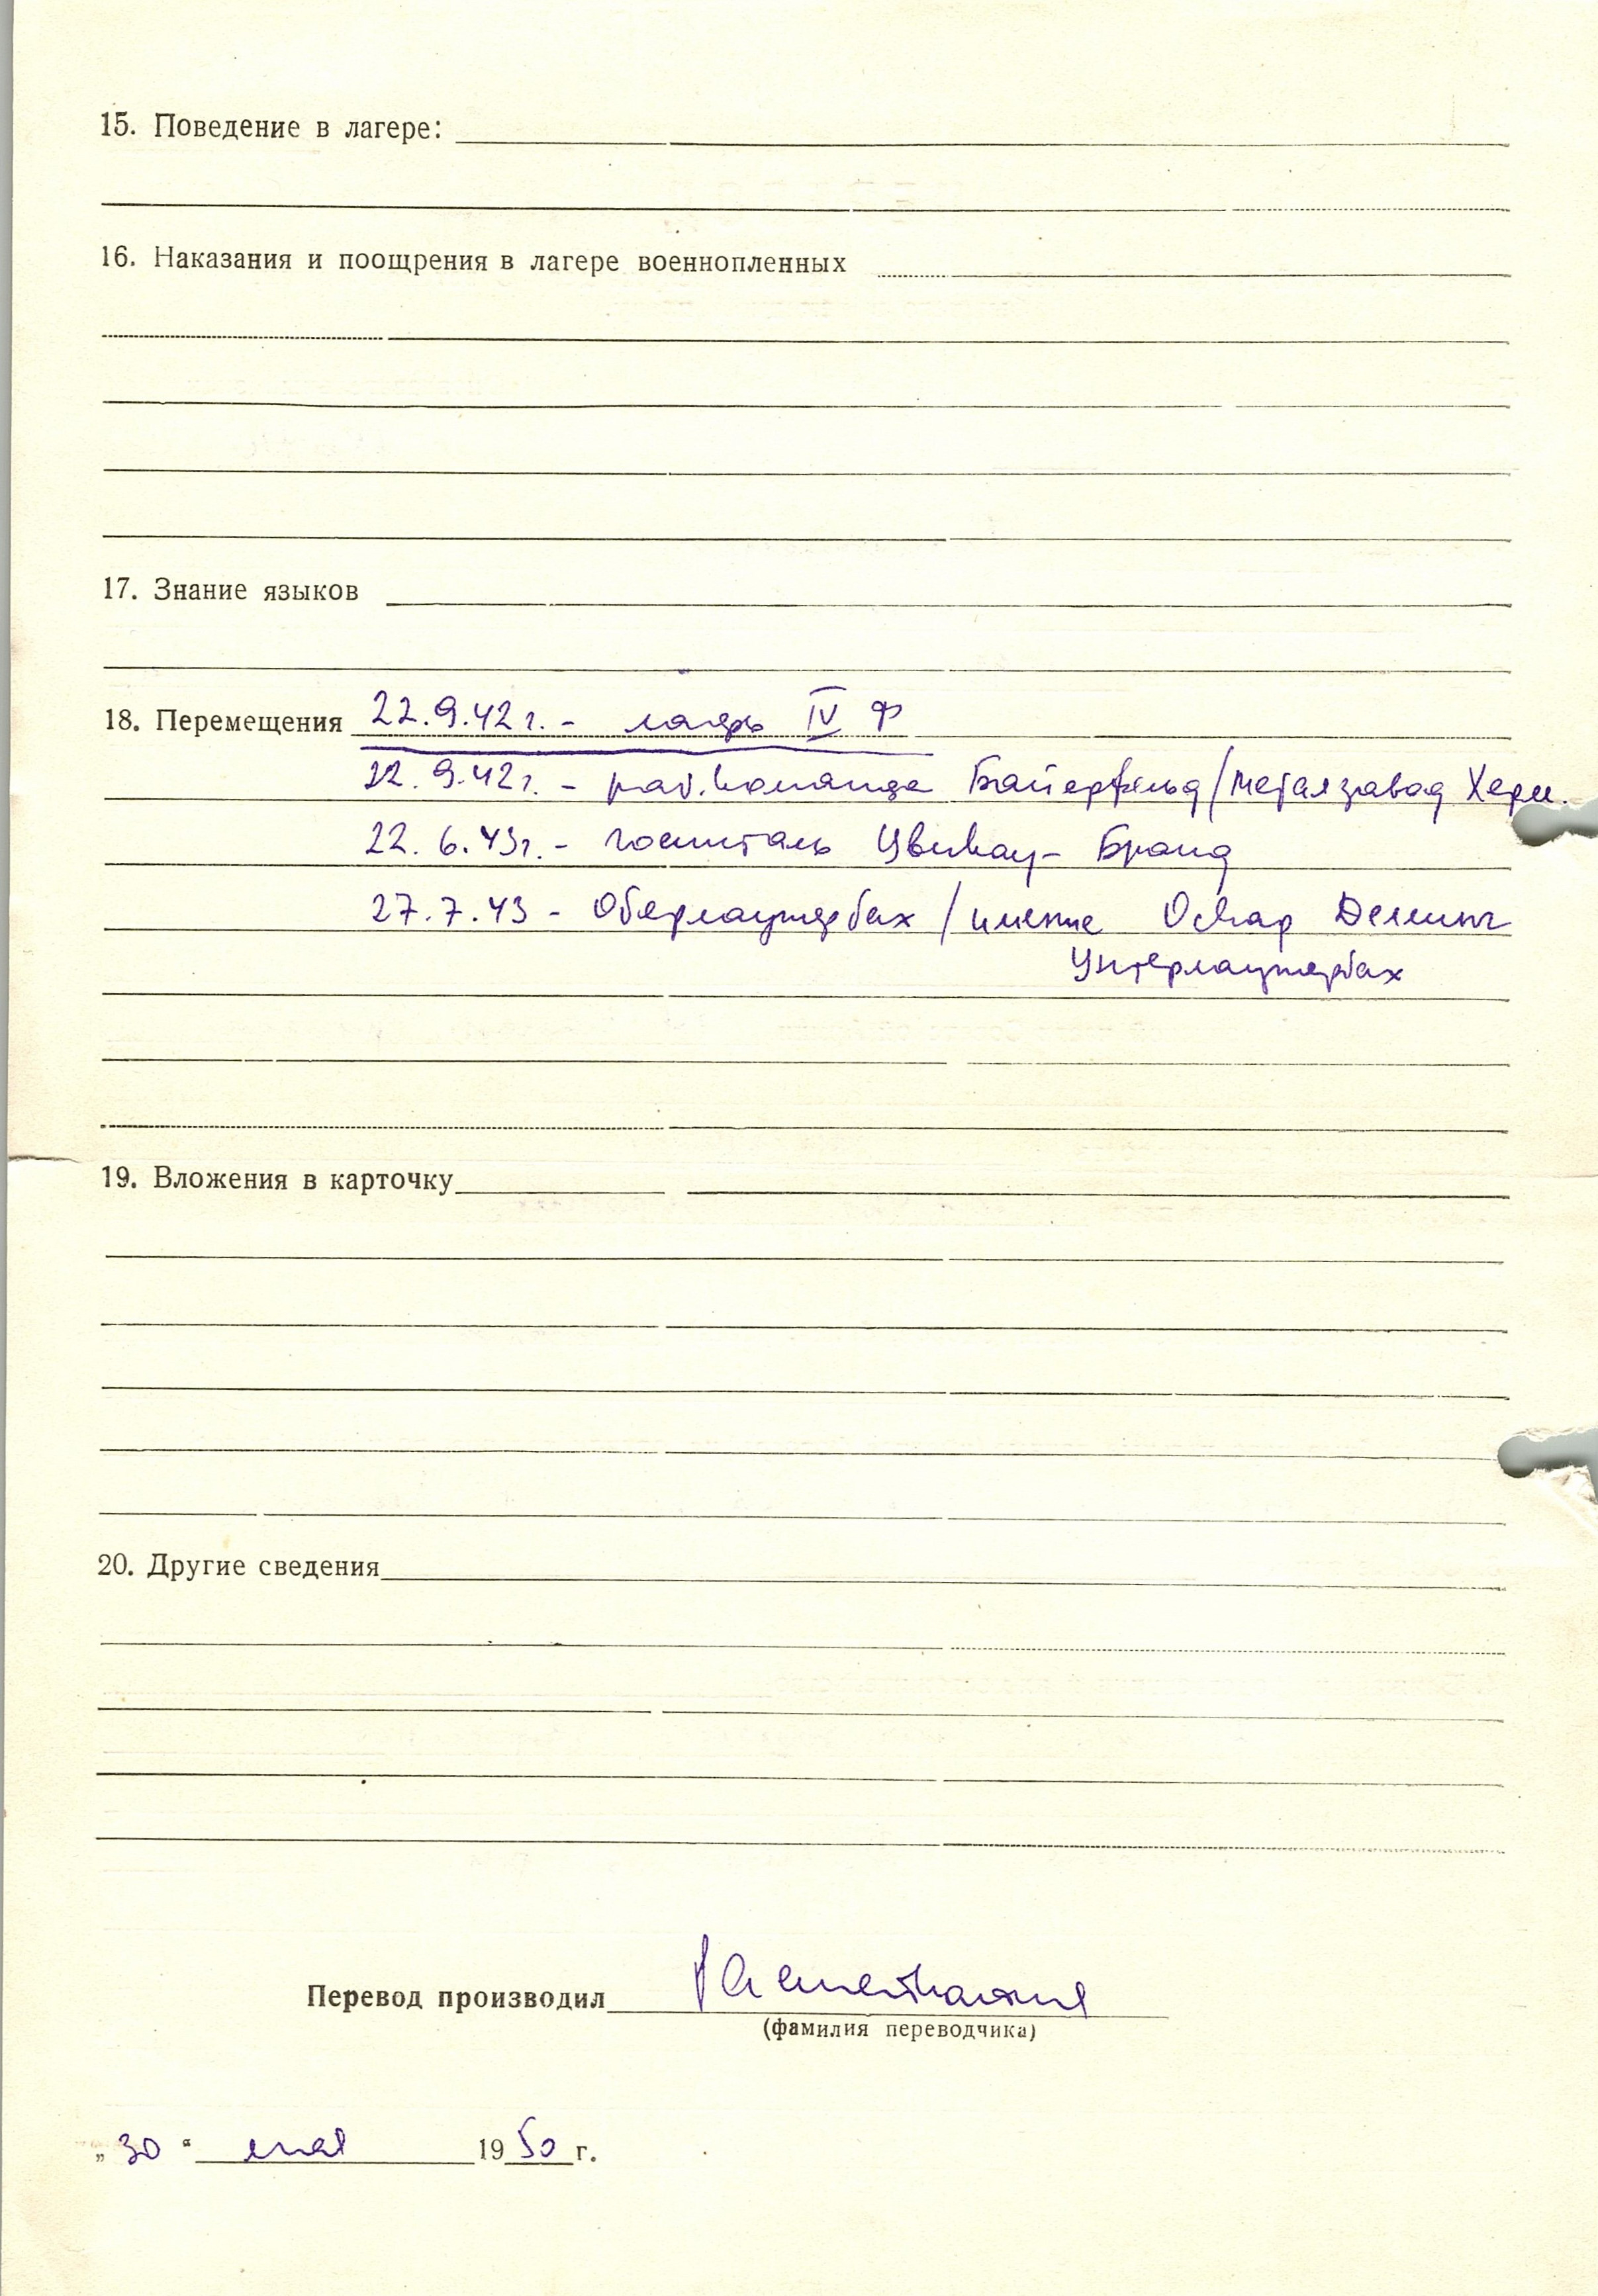 15. Поведение в лагере:
16. Наказания и поощрения в лагере военнопленных
17. Знание языков
18. Перемещения 22.9.42 г. - лагерь IV Ф
22.9.42 г. - раб. команда Байерфельд / метал завод Херм.
22.6.43 г. - госпиталь Цвикау - Бранд
27.7.43 - Оберлаутербах / имение Оскар
Унтерлаутербах
19. Вложения в карточку
20. Другие сведения
Перевод производил
(фамилия переводчика)
„ 30 " мая 1950 г.